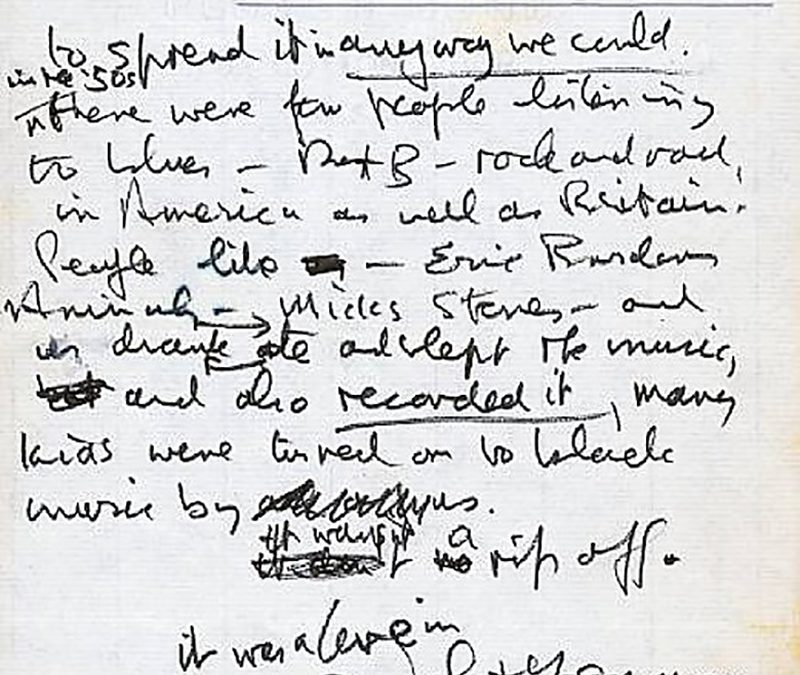 to spread it in anyway we could.
in the '50s
there were few people listening
to blues – R+B – rock and roll,
in America as well as Britain.
People like – Eric Burdons
Animals – Micks Stones – and
us drank ate and slept the music,
and also recorded it, many
kids were turned on to black
music by us.
it wasn't a rip off.
it was a love in